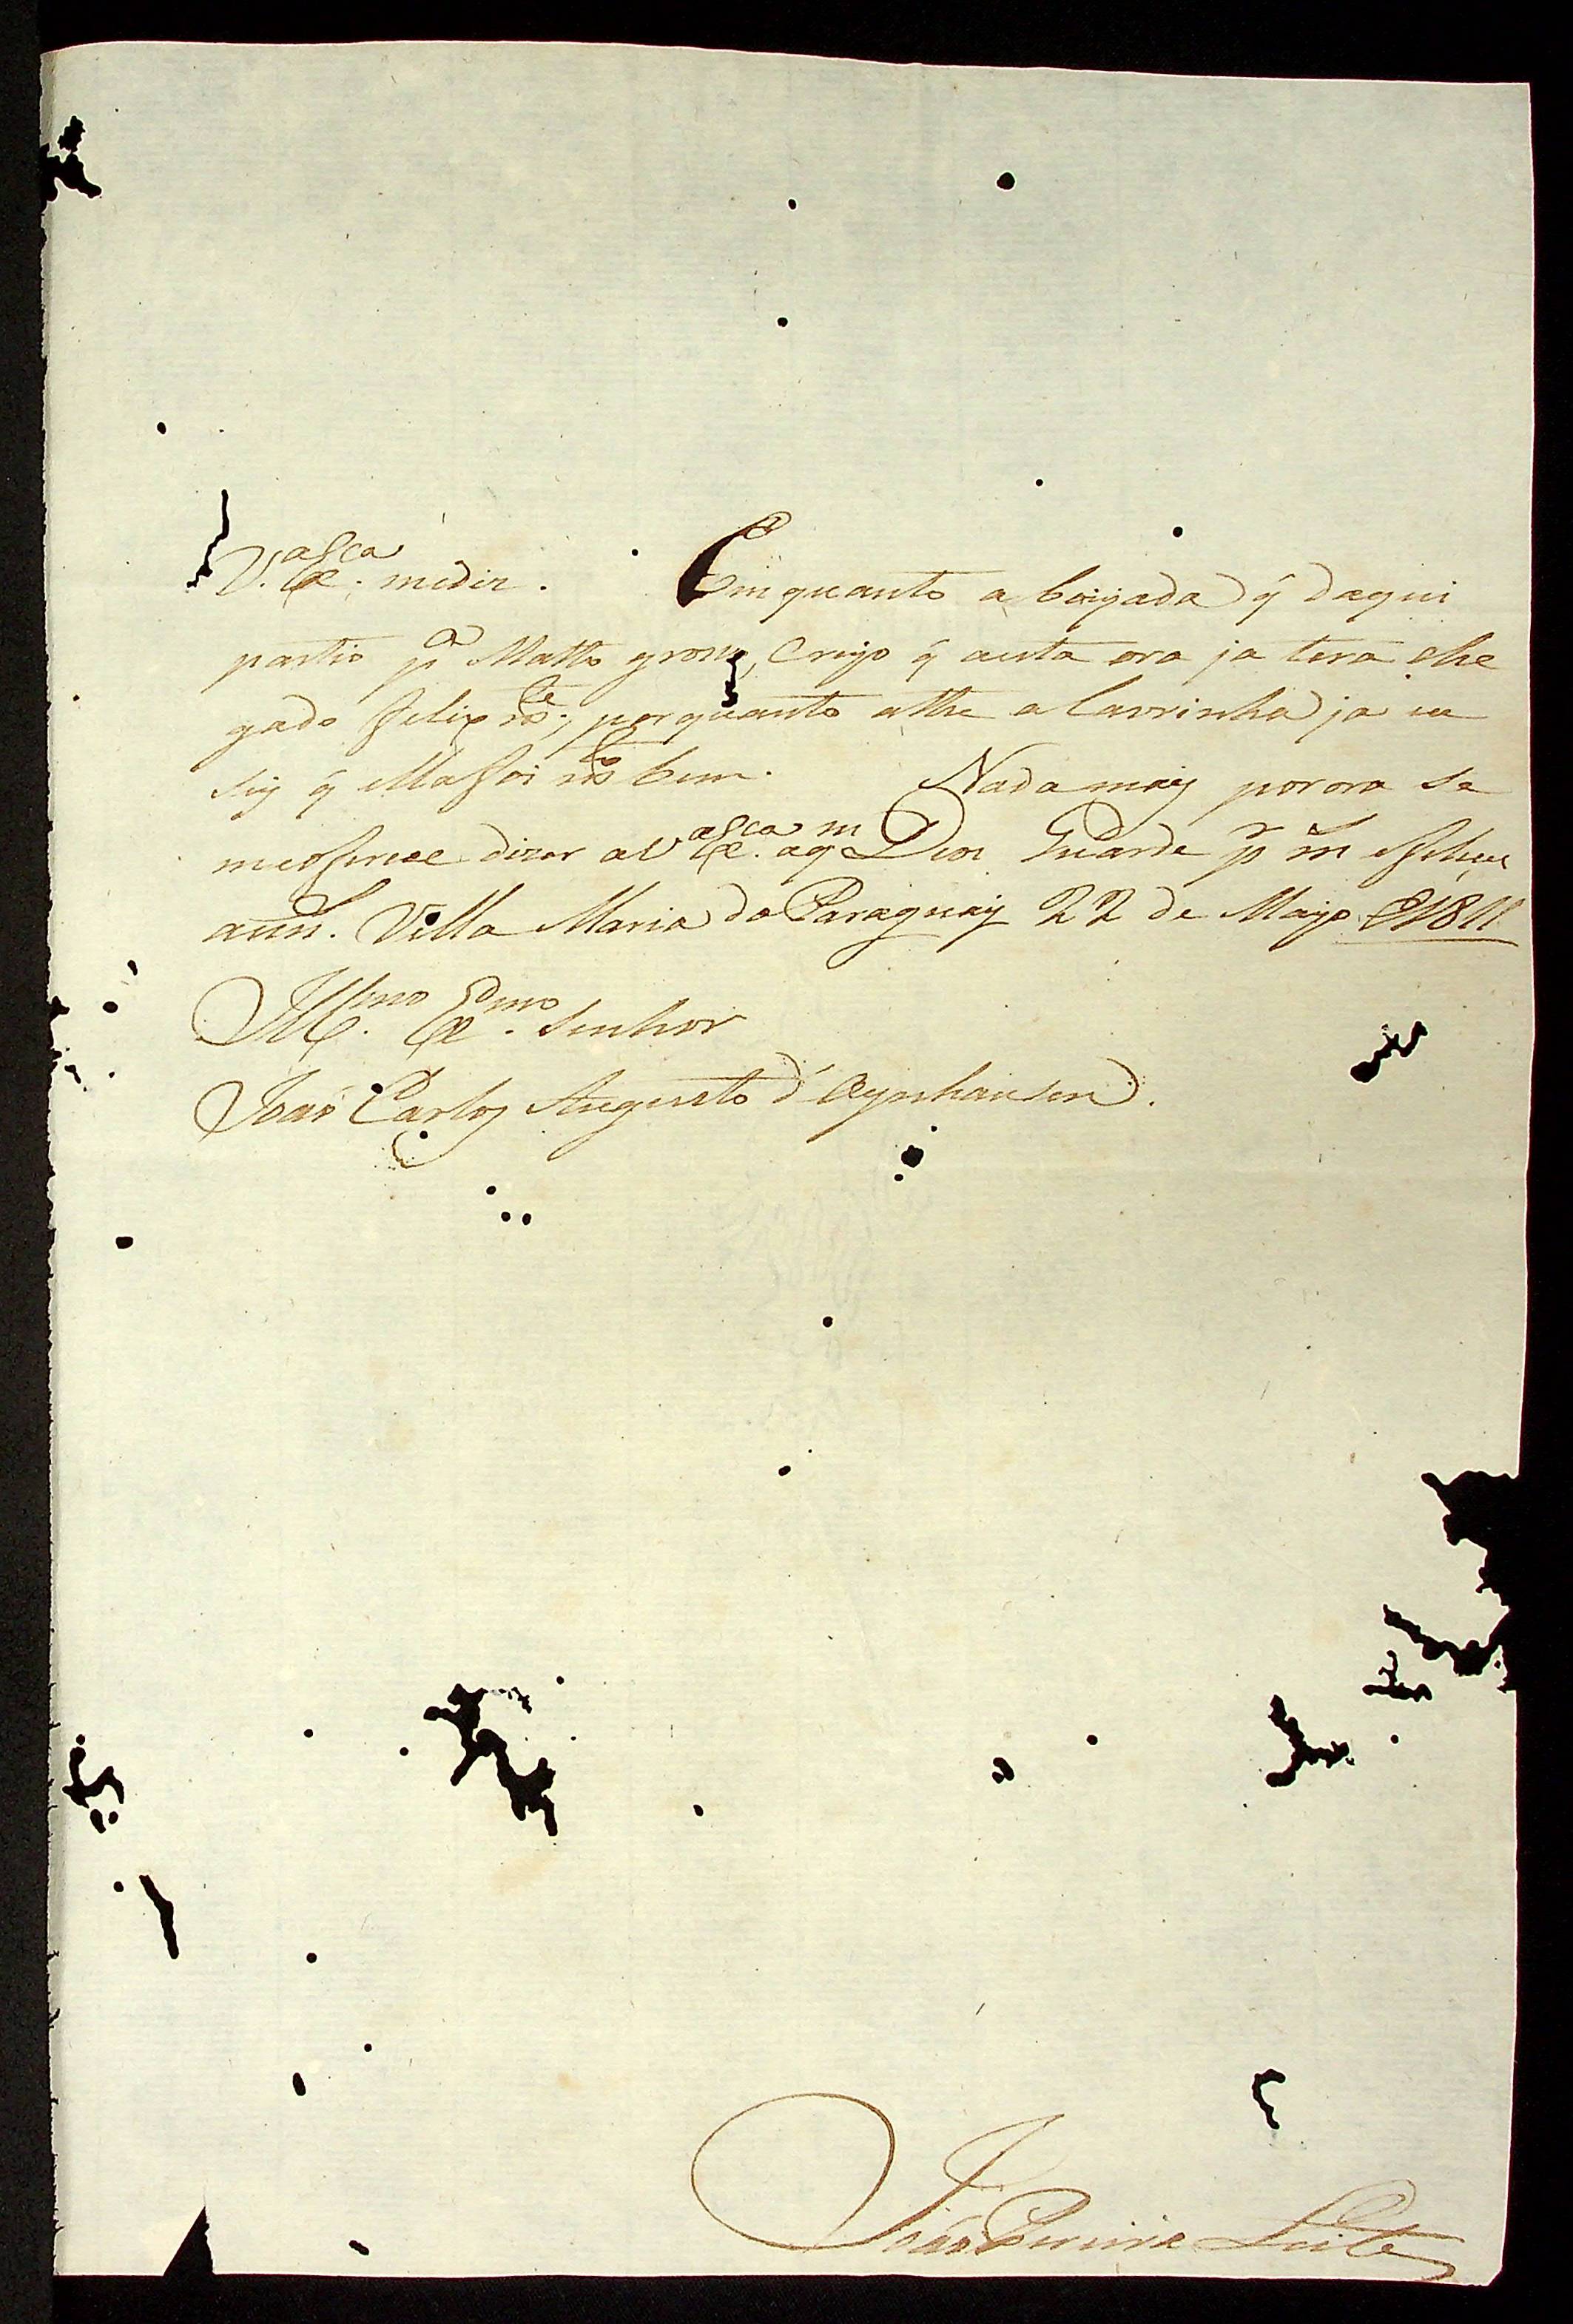 V. Exª. medir. Em quanto a boiyada q̃ daqui
partio pª Matto groso, Creyo q̃ aesta ora ja terá che
gado felix mte; porquanto athe a Lavrinha ja
q̃ foi mto bem. Nada mais por ora se
meoferece dizer aV Exca. aqm Deos Guarde pr ms felices
anns. Villa Maria do Paraguay 22 de Mayo 1811
Illmo. Exmo. Senhor
João Carlos Augusto d'Oeynhausen.
João Pereira Leite